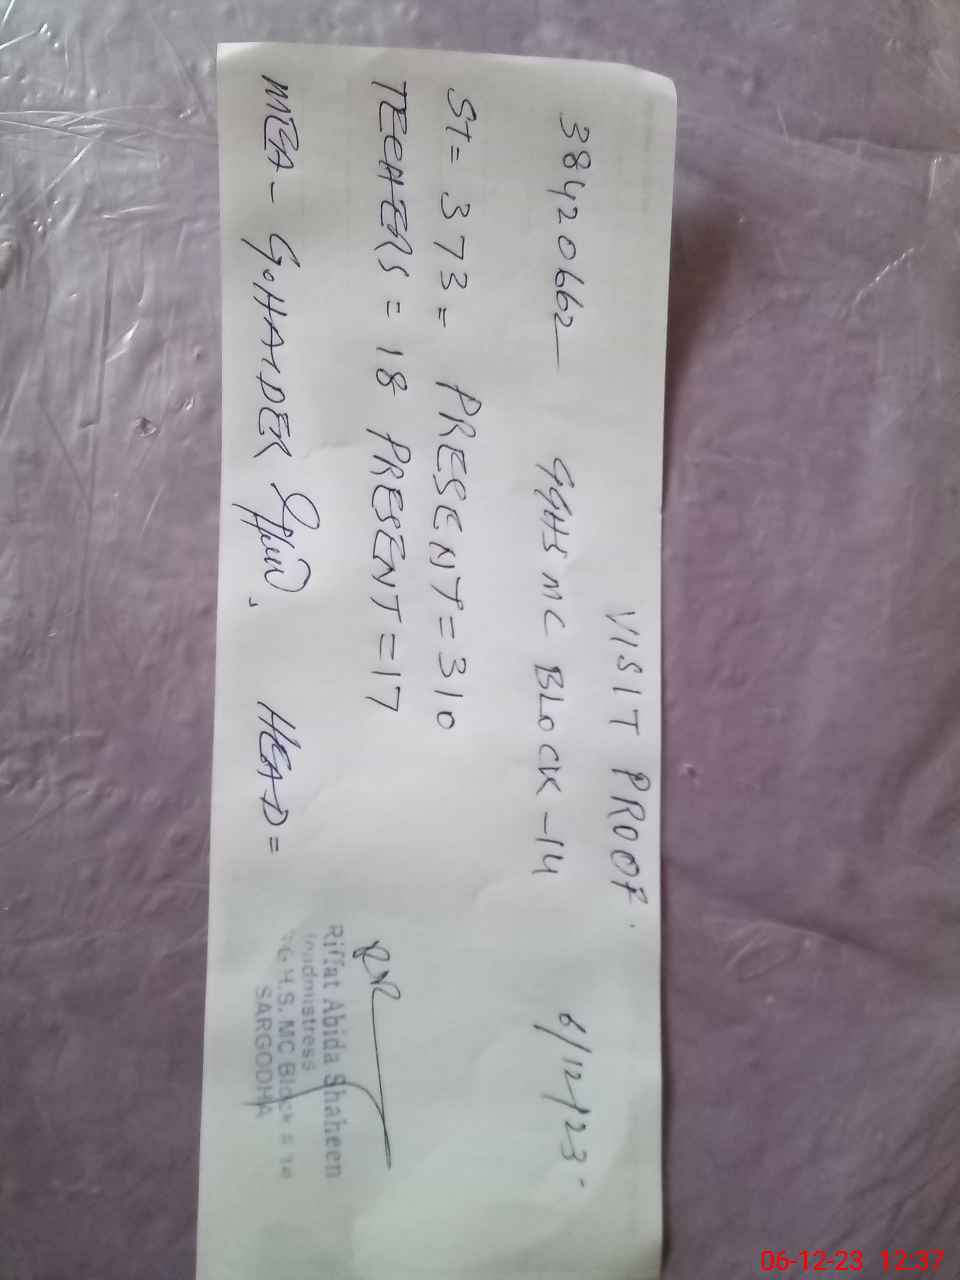 VISIT PROOF.
38420662 GGHS MC BLOCK-14 6/12/23.
St= 373= PRESENT=310
TECHERS = 18 PRESENT=17
MEA- GOHAIDER HEAD=
Riffat Abida Shaheen
Headmistress
G.H.S. MC Block # 14
SARGODHA
06-12-23 12:37